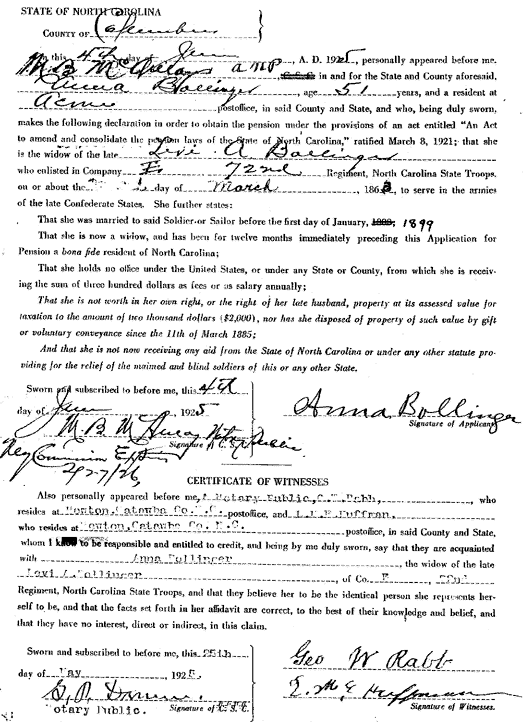 STATE OF NORTH CAROLINA
COUNTY OF Columbus
On this 4th day of Jan, A. D. 1925, personally appeared before me.
M. B. a NP in and for the State and County aforesaid,
Anna Bollinger, age 51 years, and a resident at
Acme postoffice, in said County and State, and who, being duly sworn,
makes the following declaration in order to obtain the pension under the provisions of an act entitled "An Act
to amend and consolidate the pension laws of the State of North Carolina," ratified March 8, 1921; that she
is the widow of the late Levi A Bollinger
who enlisted in Company 72nd Regiment, North Carolina State Troops.
on or about the day of March 186, to serve in the armies
of the late Confederate States. She further states:
That she was married to said Soldier or Sailor before the first day of January, 1899
That she is now a widow, and has been for twelve months immediately preceding this Application for
Pension a bona fide resident of North Carolina;
That she holds no office under the United States, or under any State or County, from which she is receiv-
ing the sum of three hundred dollars as fees or as salary annually;
That she is not worth in her own right, or the right of her late husband, property at its assessed value for
taxation to the amount of two thousand dollars ($2,000), nor has she disposed of property of such value by gift
or voluntary conveyance since the 11th of March 1885;
And that she is not now receiving any aid from the State of North Carolina or under any other statute pro-
viding for the relief of the maimed and blind soldiers of this or any other State.
Sworn and subscribed to before me, this 4th
day of Jan, 1925
Anna Bollinger
Signature of Applicant
M B Notary Public
Signature of C. S. C.
My Commission Expires
2/27/26
CERTIFICATE OF WITNESSES
Also personally appeared before me, A Notary Public, G. W. Rabb, who
resides at Newton, Catawba Co. N. C. postoffice, and Huffman,
who resides at Newton, Catawba Co. N. C. postoffice, in said County and State,
whom I know to be responsible and entitled to credit, and being by me duly sworn, say that they are acquainted
with Anna Bollinger the widow of the late
Levi A. Bollinger, of Co. 72nd
Regiment, North Carolina State Troops, and that they believe her to be the identical person she represents her-
self to be, and that the facts set forth in her affidavit are correct, to the best of their knowledge and belief, and
that they have no interest, direct or indirect, in this claim.
Sworn and subscribed to before me, this 25th
day of May, 1925.
Geo W Rabb
Huffman
Signature of Witnesses.
Notary Public. Signature of C. S. C.